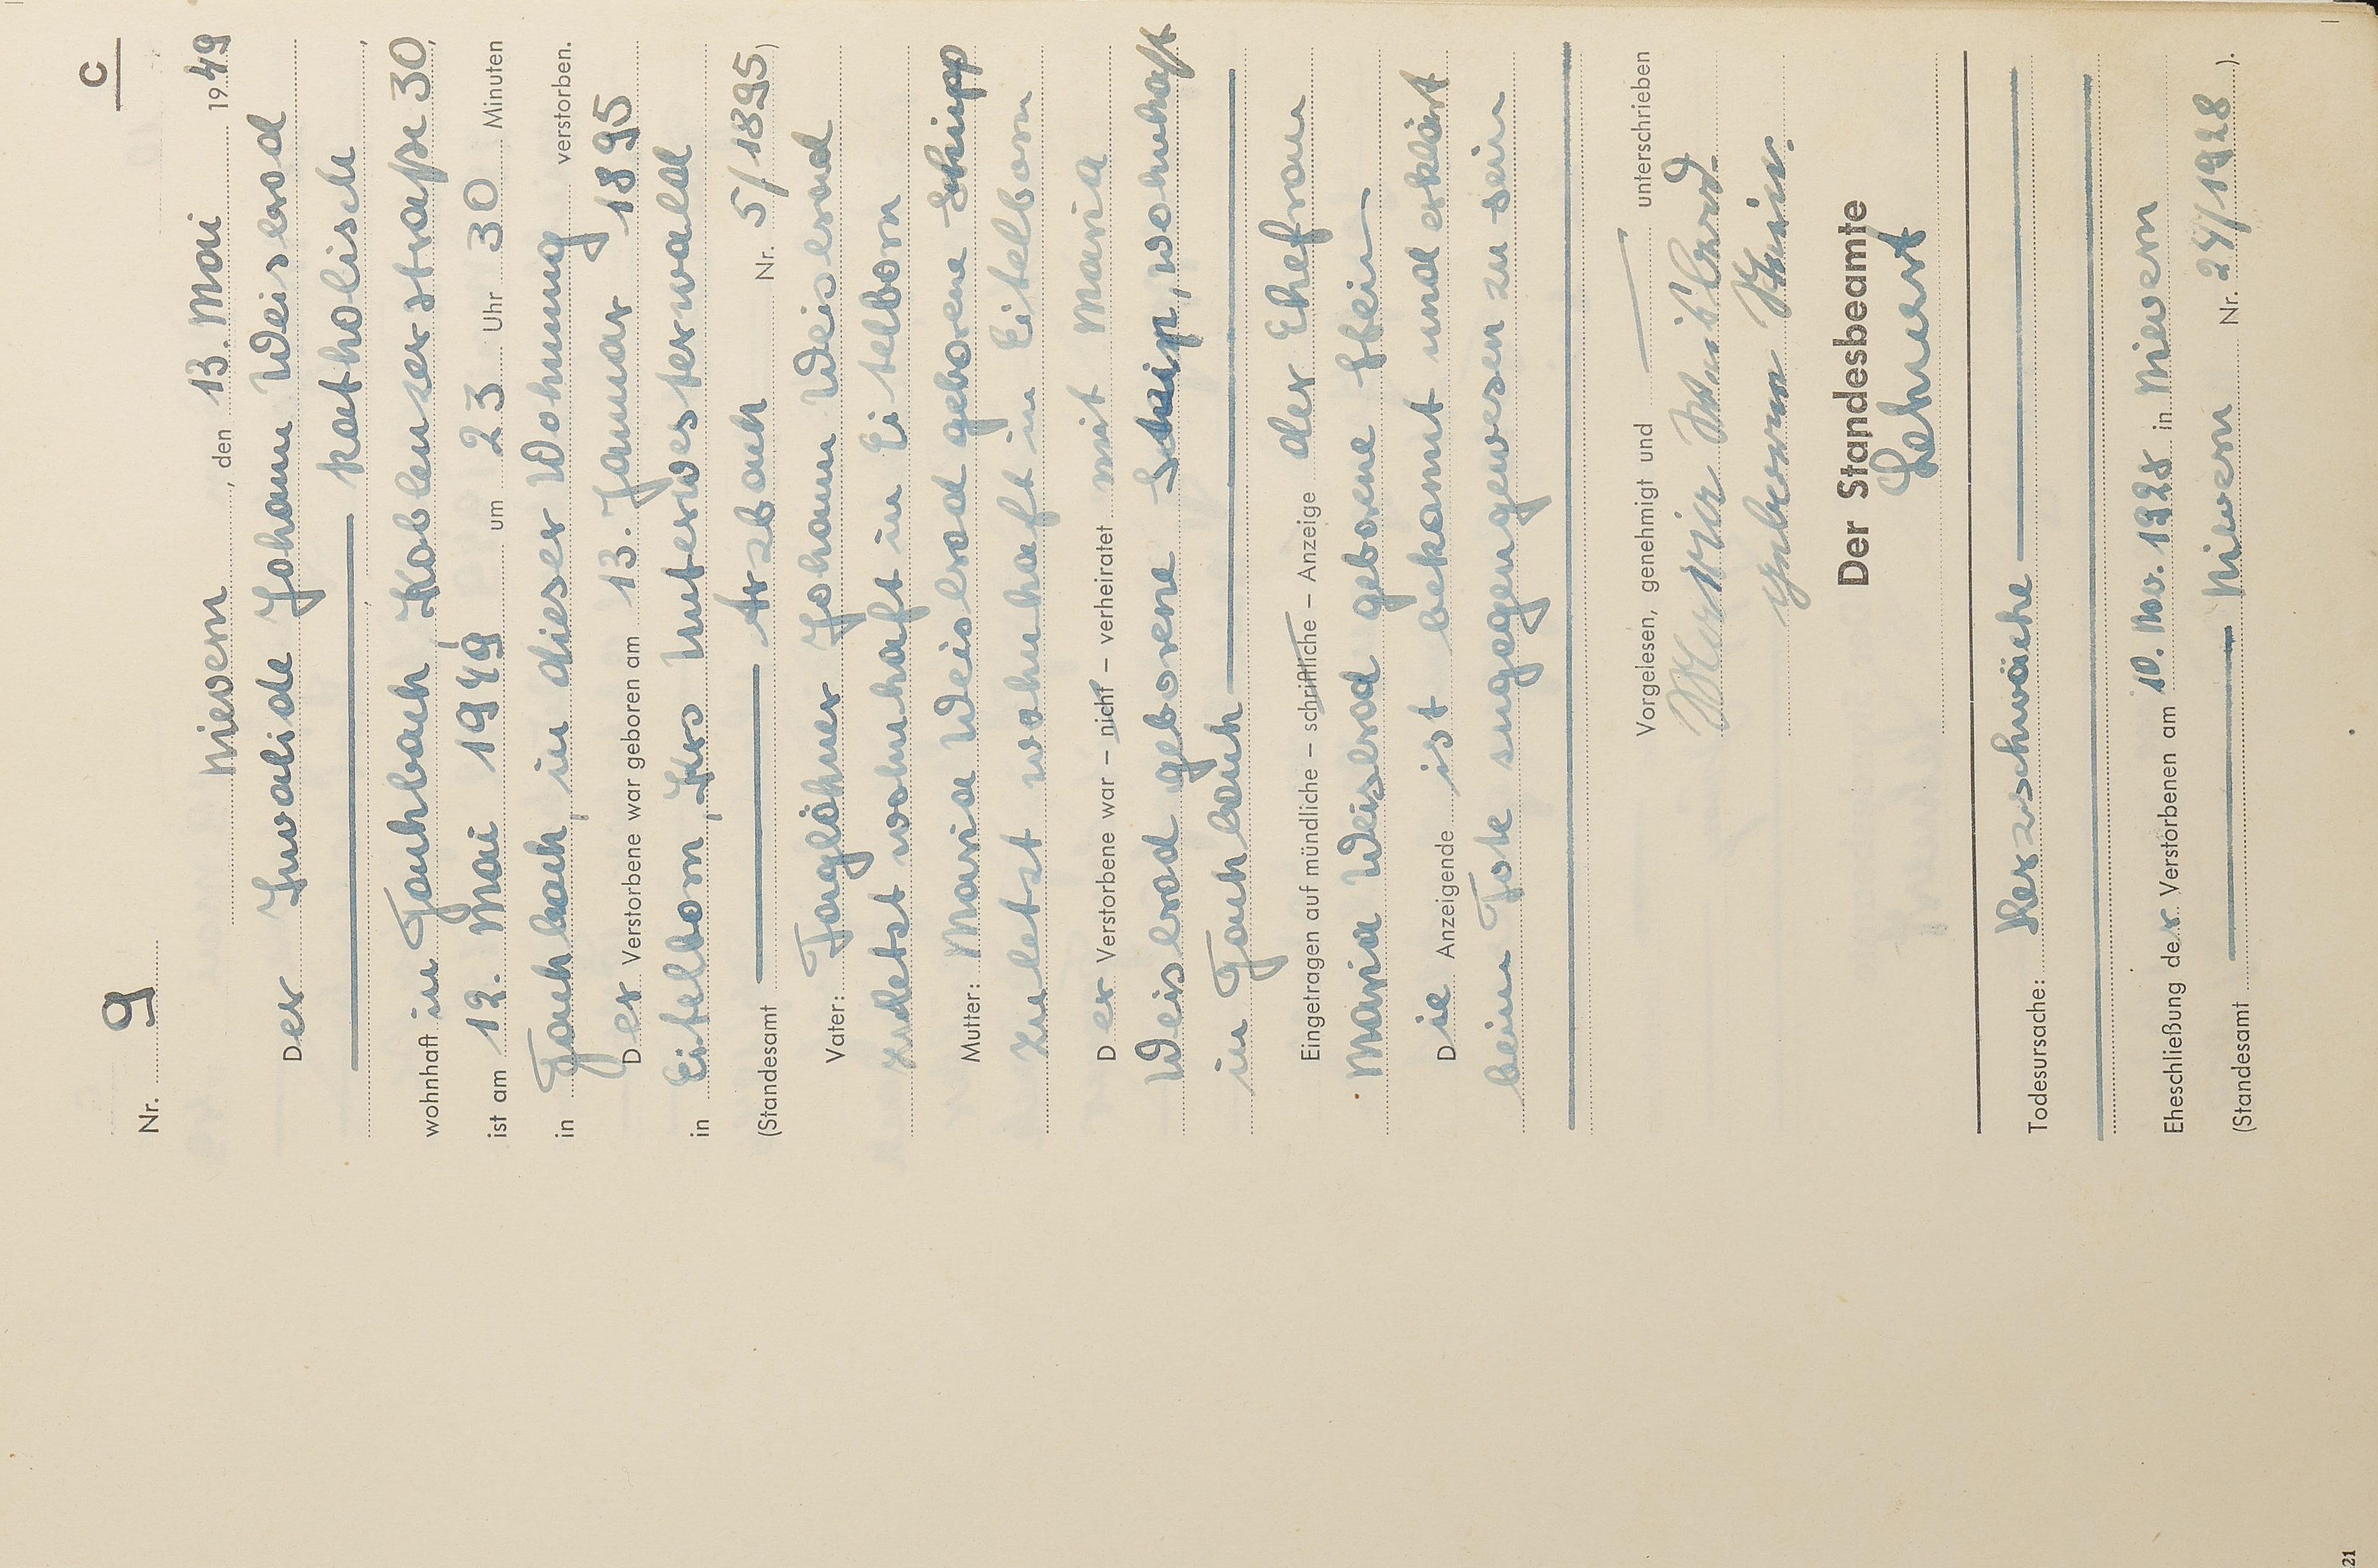 C
Nr. 9
Nievern, den 13. Mai 1949
Der Invalide Johann Weisbrod
katholisch,
wohnhaft in Fachbach, Koblenzerstraße 30,
ist am 12. Mai 1949 um 23 Uhr 30 Minuten
in Fachbach, in dieser Wohnung verstorben.
Der Verstorbene war geboren am 13. Januar 1895
in Eitelborn, Krs Unterwesterwald
(Standesamt Arzbach Nr. 5/1895)
Vater: Taglöhner Johann Weisbrod
zuletzt wohnhaft in Eitelborn
Mutter: Maria Weisbrod geborene
zuletzt wohnhaft in Eitelborn
Der Verstorbene war – nicht – verheiratet mit Maria
Weisbrod geborene, wohnhaft
in Fachbach
Eingetragen auf mündliche – schriftliche – Anzeige der Ehefrau
Maria Weisbrod geborene Stein
Die Anzeigende ist bekannt und erklärt
beim Tode zugegengewesen zu sein
Vorgelesen, genehmigt und unterschrieben
Maria Weisbrod.
geborene Stein.
Der Standesbeamte
Lehnert
Todesursache: Herzschwäche
Eheschließung der Verstorbenen am 10. Nov. 1928 in Nievern
(Standesamt Nievern Nr. 24/1928).
21